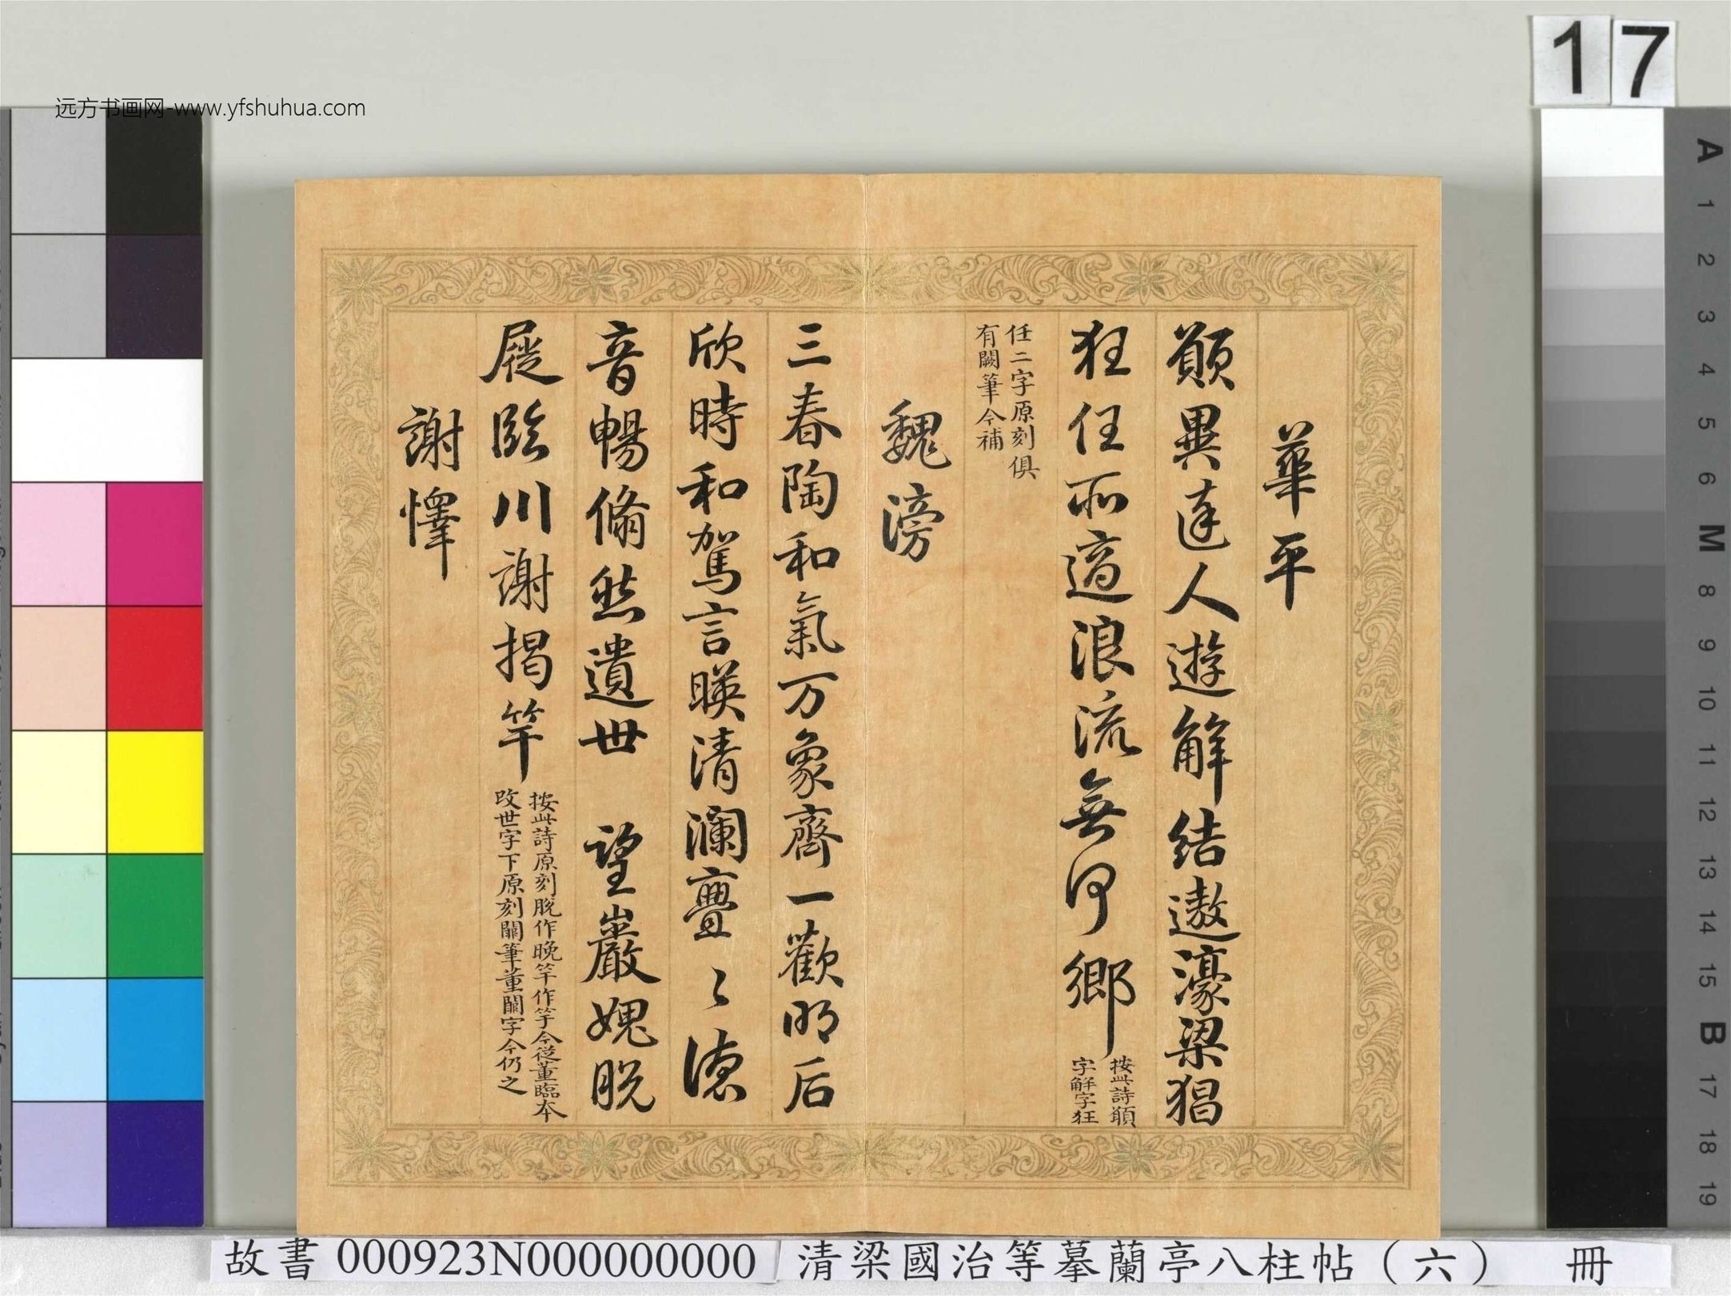 17
远方书画网-www.yfshuhua.com
華平
願與達人遊解結遨濠梁狷
狂任所適浪流無何鄉
按此詩願
字解字狂
任二字原刻俱
有闕筆今補
魏滂
三春陶和氣万象齊一歡明后
欣時和駕言暎清瀾亹〻德
音暢翛然遺世 望巖愧脫
屣臨川謝揭竿
按此詩原刻脫作晚竿作竽今從董臨本
改世字下原刻闕筆董闕字今仍之
謝懌
A
1
2
3
4
5
6
M
8
9
10
11
12
13
14
15
B
17
18
19
故書 000923N000000000
清梁國治等摹蘭亭八柱帖（六） 冊